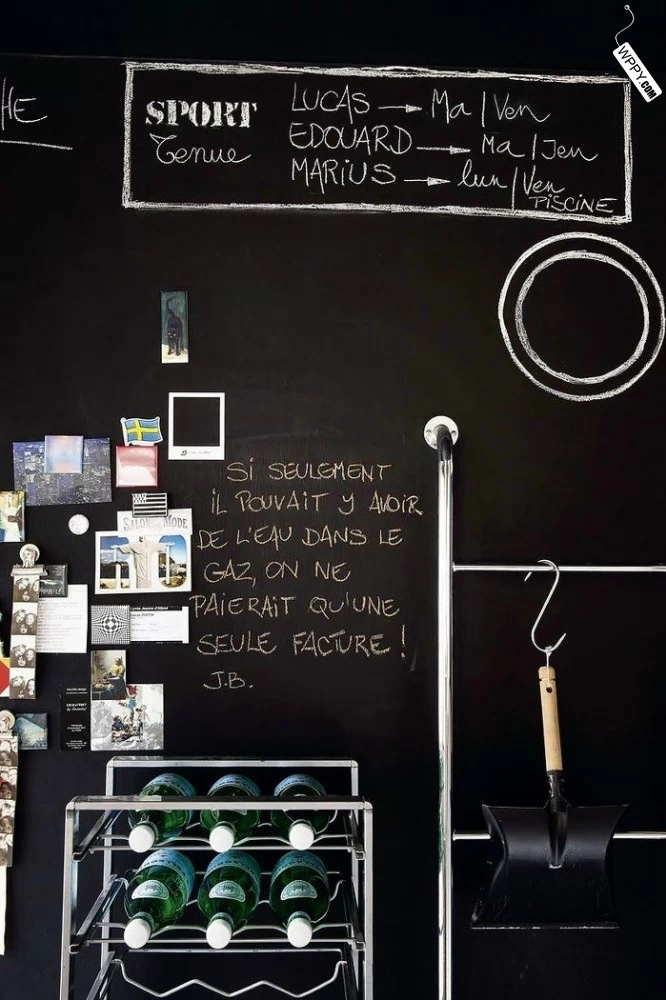 WPPY.COM
HE
SPORT
Tenue
LUCAS → Ma | Ven
EDOUARD → Ma | Jeu
MARIUS → lun | Ven
PISCINE
SALON MODE
SI SEULEMENT
IL POUVAIT Y AVOIR
DE L'EAU DANS LE
GAZ, ON NE
PAIERAIT QU'UNE
SEULE FACTURE !
J.B.